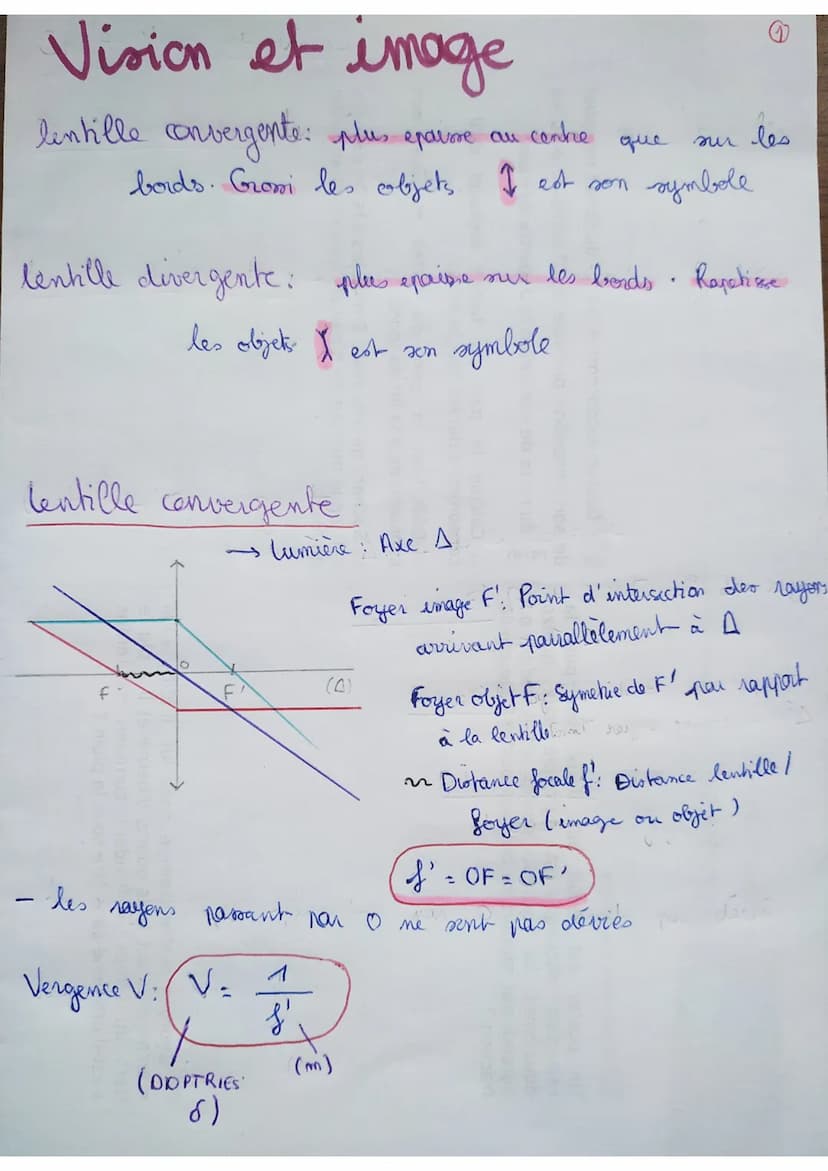 ①
Vision et image
lentille convergente: plus epaisse au centre que sur les
bords. Grossi les objets ↕ est son symbole
lentille divergente: plus epaisse sur les bords. Rapetisse
les objets est son symbole
lentille convergente
→ Lumière : Axe Δ
Foyer image F': Point d'intersection des rayons
arrivant parallèlement à Δ
Foyer objet F: Symetrie de F' par rapport
à la lentille
~ Distance focale f': Distance lentille /
foyer (image ou objet)
f' = OF = OF'
O
F
F'
(Δ)
- les rayons passant par O ne sont pas déviés
Vergence V: V = 1/f'
(m)
(DIOPTRIES
δ)